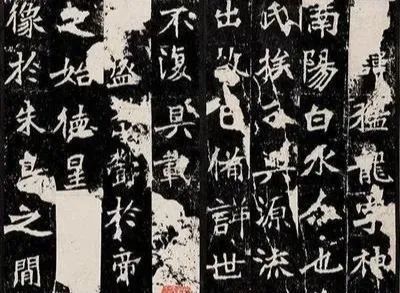 猛龍字神
南陽白水人也
氏族分興源流
出故已備詳世
不復具載
盛於帝
之始德星
像於朱鳥之閒